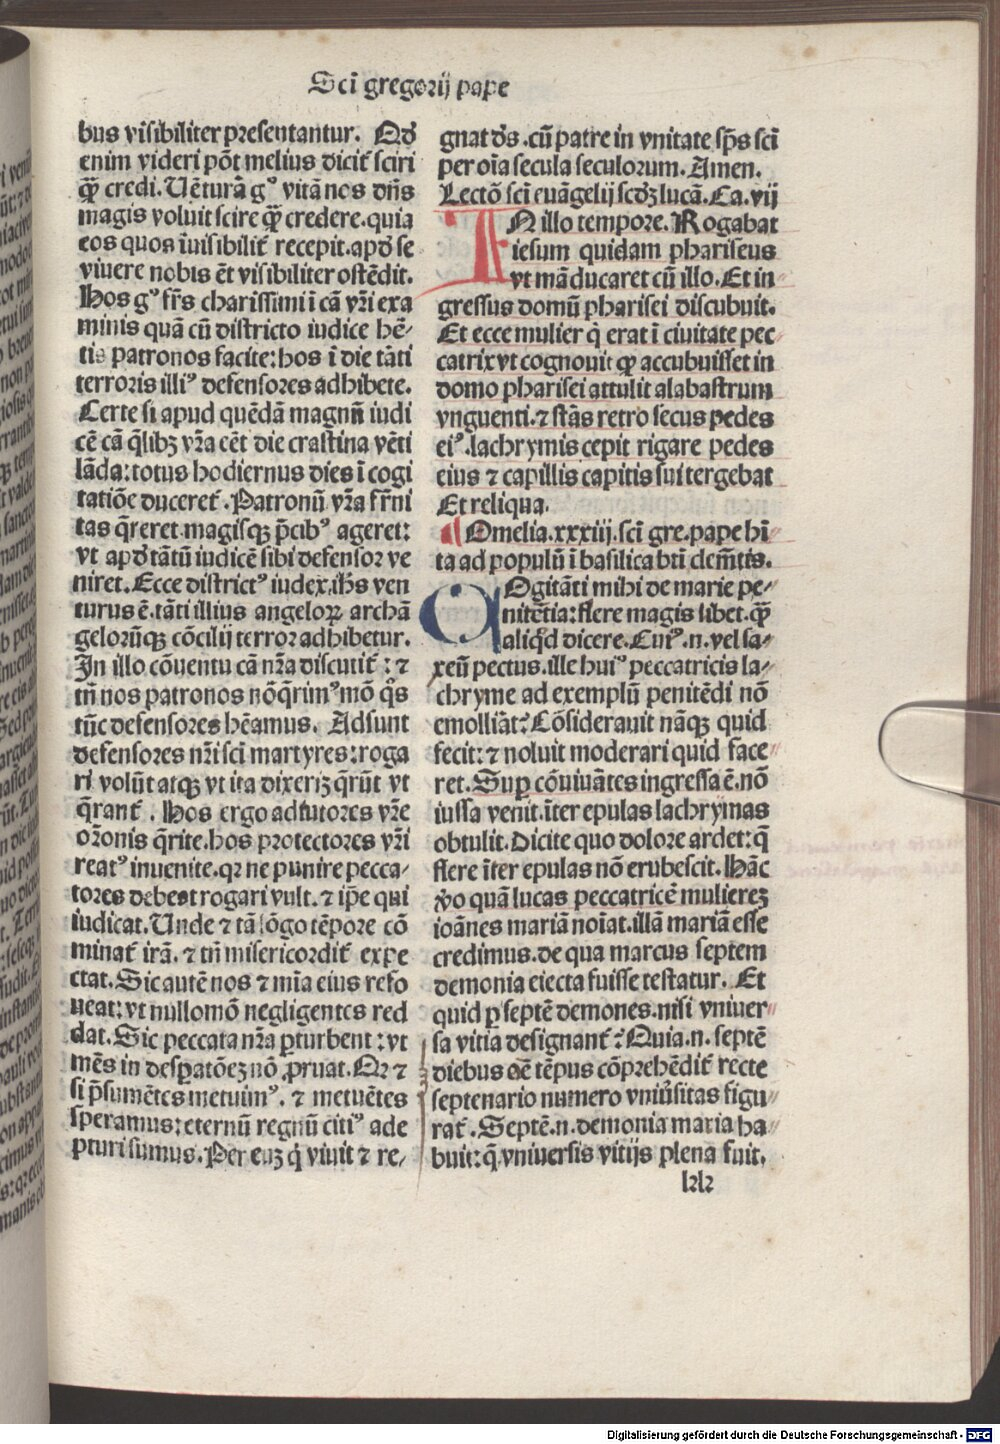 Scī gregorij pape
bus visibiliter presentantur. Qđ
enim videri pōt melius dicit̄ sciri
q̄ꝫ credi. Uēturā gˀ vitā nos dn̄s
magis voluit scire q̄ꝫ credere. quia
eos quos īuisibilit̄ recepit. apđ se
viuere nobis ēt visibiliter ostēdit.
Hos gˀ fr̄s charissimi ī cā vr̄i exa
minis quā cū districto iudice hē-
tis patronos facite: hos ī die tāti
terroris illiˀ defensores adhibete.
Certe si apud quēdā magnū iudi
cē cā q̄libꝫ vr̄a cēt die crastina vēti
lāda: totus hodiernus dies ī cogi
tatiōe duceret̄. Patronū vr̄a fr̄ni
tas q̄reret. magisqꝫ p̄cibˀ ageret:
vt apđ tātū iudicē sibi defensor ve
niret. Ecce districtˀ iudex. ih̄s ven
turus ē. tāti illius angeloꝝ archā
gelorūqꝫ cōcilij terror adhibetur.
In illo cōuentu cā nr̄a discutit̄: ⁊
tn̄ nos patronos nō q̄rimˀ mō q°s
tūc defensores hēamus. Adsunt
defensores nr̄i sci martyres: roga
ri volūt atqꝫ vt ita dixeriꝫ q̄rūt vt
q̄rant̄. Hos ergo adiutores vr̄e
or̄onis q̄rite. hos protectores vr̄i
reatˀ inuenite. qꝛ ne punire pecca-
tores debest rogari vult. ⁊ ip̄e qui
iudicat. Unde ⁊ tā lōgo tēpore cō
minat̄ irā. ⁊ tn̄ misericordit̄ expe
ctat. Sic autē nos ⁊ mīa eius refo
ueat: vt nullomō negligentes red
dat. Sic peccata nr̄a ꝑturbent: vt
mēs in desꝑatōeꝫ nō ꝓruat. Qꝛ ⁊
si p̄sumētes metuimˀ. ⁊ metuētes
speramus: eternū regnū citiˀ ade
pturi sumus. Per euꝫ q̇ viuit ⁊ re-
gnat d̄s. cū patre in vnitate sp̄s sci
per oīa secula seculorum. Amen.
Lectō sci euāgelij scđꝫ lucā. Ca. vij
IN illo tempore. Rogabat
iesum quidam phariseus
vt māducaret cū illo. Et in
gressus domū pharisei discubuit.
Et ecce mulier q̄ erat ī ciuitate pec
catrix vt cognouit qꝫ accubuisset in
domo pharisei attulit alabastrum
vnguenti. ⁊ stās retro secus pedes
eiˀ. lachrymis cepit rigare pedes
eius ⁊ capillis capitis sui tergebat
Et reliqua.
¶ Omelia. xxxiij. sci gre. pape hī
ta ad populū ī basilica bti clemētis.
COgitāti mihi de marie pe-
nitētia: flere magis libet. q̄ꝫ
aliq̇d dicere. Cuiˀ. n. vel sa-
xeū pectus. ille huiˀ peccatricis la-
chryme ad exemplū penitēdi nō
emolliāt? Cōsiderauit nāqꝫ quid
fecit: ⁊ noluit moderari quid face
ret. Suꝑ cōuiuātes ingressa ē. nō
iussa venit. īter epulas lachrymas
obtulit. Dicite quo dolore ardet: q̄
flere īter epulas nō erubescit. Hāc
v̊o quā lucas peccatricē muliereꝫ
ioānes mariā noīat. illā mariā esse
credimus. de qua marcus septem
demonia eiecta fuisse testatur. Et
quid ꝑ septē demones. nisi vniuer
sa vitia designant̄? Quia. n. septē
diebus oē tēpus cōprehēdit̄ recte
septenario numero vniu̓sitas figu
rat̄. Septē. n. demonia maria ha
buit: q̄ vniuersis vitijs plena fuit.
kk
Digitalisierung gefördert durch die Deutsche Forschungsgemeinschaft - DFG